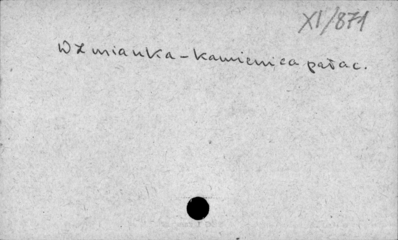 XI/871
Wzmianka – kamienica pałac.